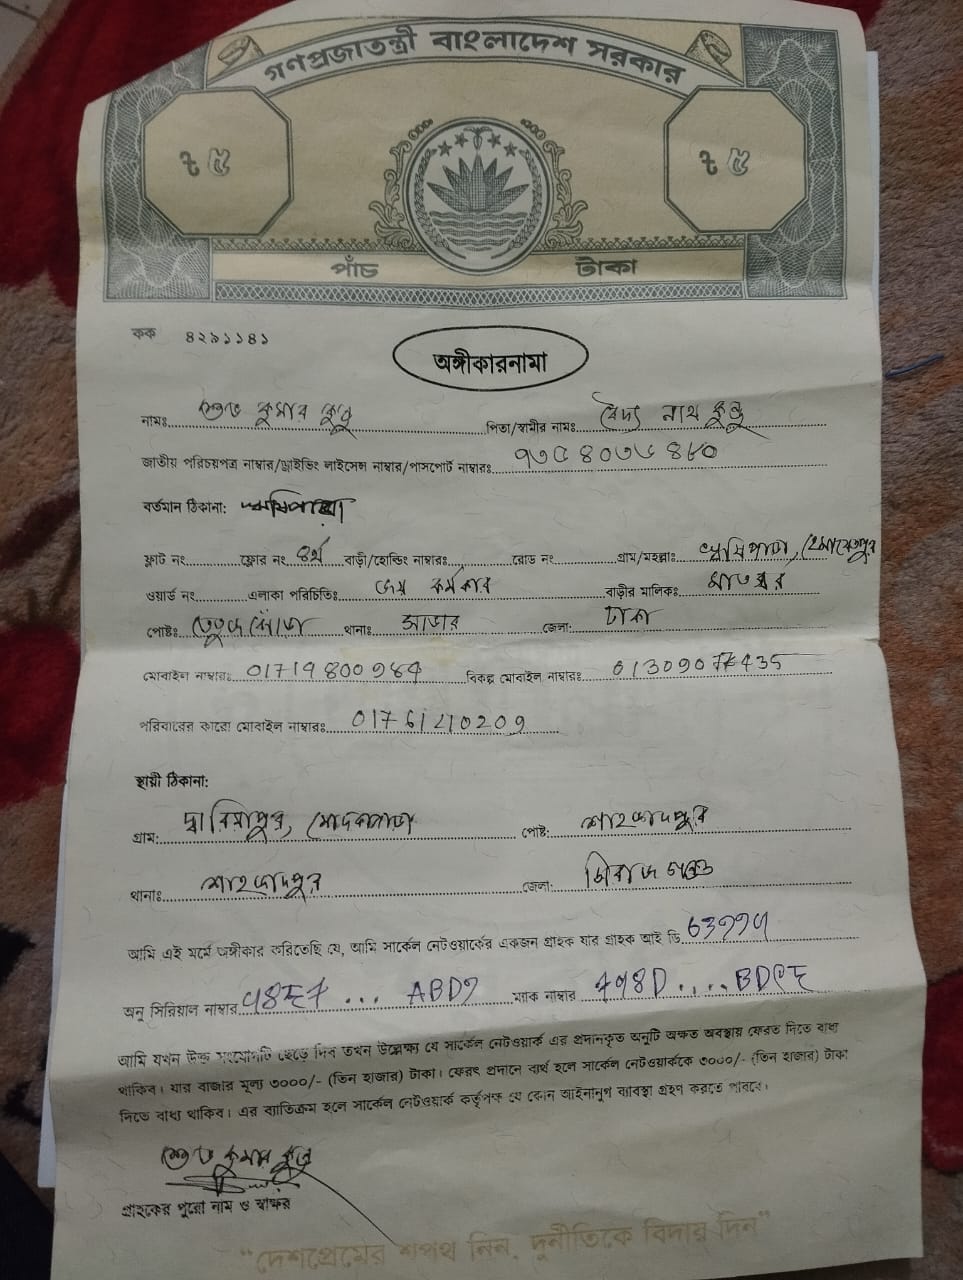 গণপ্রজাতন্ত্রী বাংলাদেশ সরকার
৳ ৫ ৳ ৫
পাঁচ টাকা
কক ৪২৯১১৪১
অঙ্গীকারনামা
নামঃ শুভ কুমার কুন্ডু পিতা/স্বামীর নামঃ বৈদ্য নাথ কুন্ডু
জাতীয় পরিচয়পত্র নাম্বার/ড্রাইভিং লাইসেন্স নাম্বার/পাসপোর্ট নাম্বারঃ
বর্তমান ঠিকানা: ঋষিপাড়া
ফ্লাট নং ফ্লোর নং ৪র্থ বাড়ী/হোল্ডিং নাম্বারঃ রোড নং গ্রাম/মহল্লাঃ ঋষিপাড়া, হেমায়েতপুর
ওয়ার্ড নং এলাকা পরিচিতিঃ জয় কর্মকার বাড়ীর মালিকঃ মাতব্বর
পোষ্টঃ তেঁতুলঝোড়া থানাঃ সাভার জেলা: ঢাকা
মোবাইল নাম্বারঃ 01719800984 বিকল্প মোবাইল নাম্বারঃ
পরিবারের কারো মোবাইল নাম্বারঃ 01761210209
স্থায়ী ঠিকানা:
গ্রাম: দ্বারিয়াপুর, পোষ্ট: শাহজাদপুর
থানাঃ শাহজাদপুর জেলা: সিরাজগঞ্জ
আমি এই মর্মে অঙ্গীকার করিতেছি যে, আমি সার্কেল নেটওয়ার্কের একজন গ্রাহক যার গ্রাহক আই ডি
অনু সিরিয়াল নাম্বার ... ম্যাক নাম্বার
আমি যখন উক্ত সংযোগটি ছেড়ে দিব তখন উল্লেক্ষ্য যে সার্কেল নেটওয়ার্ক এর প্রদানকৃত অনুটি অক্ষত অবস্থায় ফেরত দিতে বাধ্য
থাকিব। যার বাজার মূল্য ৩০০০/- (তিন হাজার) টাকা। ফেরৎ প্রদানে ব্যর্থ হলে সার্কেল নেটওয়ার্ককে ৩০০০/- (তিন হাজার) টাকা
দিতে বাধ্য থাকিব। এর ব্যতিক্রম হলে সার্কেল নেটওয়ার্ক কর্তৃপক্ষ যে কোন আইনানুগ ব্যবস্থা গ্রহণ করতে পারবে।
শুভ কুমার কুন্ডু
গ্রাহকের পুরো নাম ও স্বাক্ষর
"দেশপ্রেমের শপথ নিন, দুর্নীতিকে বিদায় দিন"